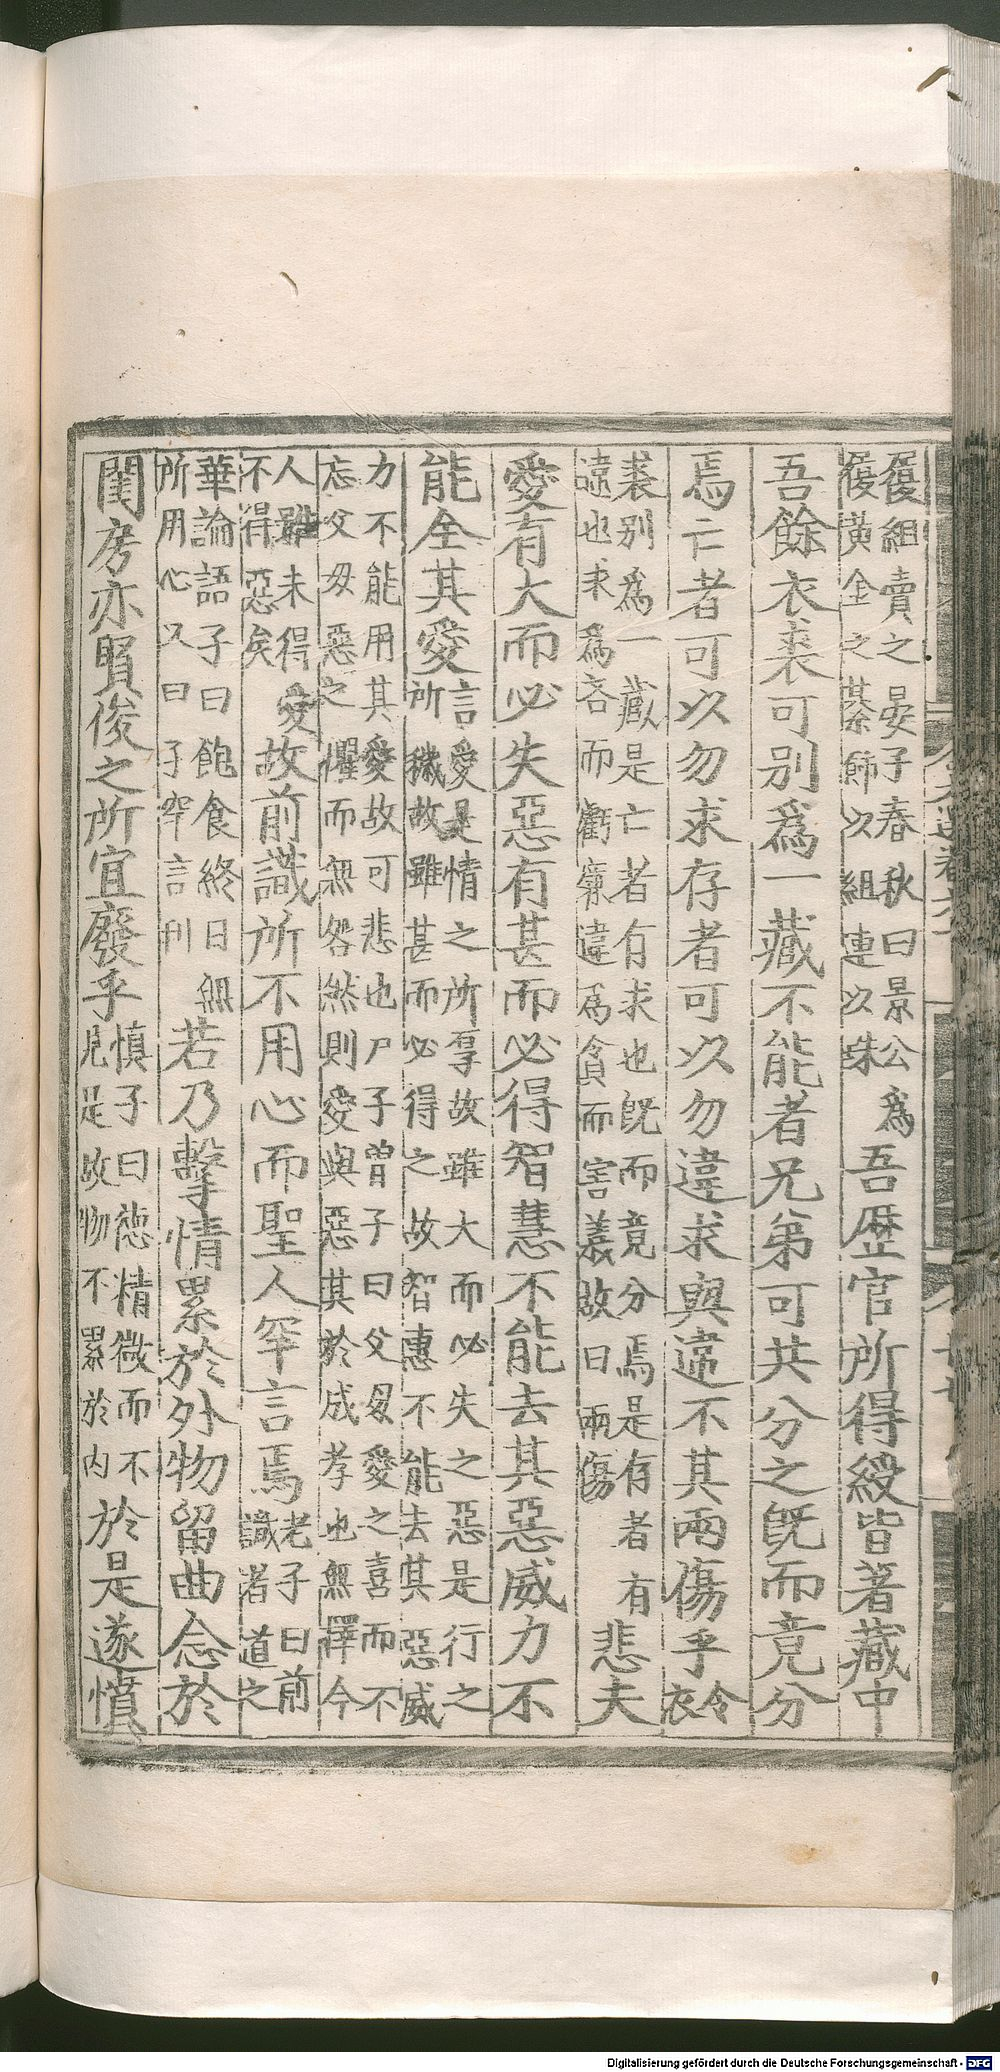 履組賣之晏子春秋曰景公爲
履黃金之綦飾以組連以珠
吾歴官所得綬皆著藏中
吾餘衣裘可別爲一藏不能者兄弟可共分之既而竟分
焉亡者可以勿求存者可以勿違求與違不其兩傷乎
令
衣
裘別爲一藏是亡者有求也既而竟分焉是存者有
違也求爲吝而虧廉違爲貪而害義故曰兩傷
悲夫
愛有大而必失惡有甚而必得智慧不能去其惡威力不
能全其愛
言愛是情之所厚故雖大而必失之惡是行之
所穢故雖甚而必得之故智惠不能去其惡威
力不能用其愛故可悲也尸子曾子曰父母愛之喜而不
忘父母惡之懼而無咎然則愛與惡其於成孝也無擇今
人雖未得愛
不得惡矣
故前識所不用心而聖人罕言焉
老子曰前
識者道之
華論語子曰飽食終日無
所用心又曰子罕言利
若乃擊情累於外物留曲念於
閨房亦賢俊之所宜廢乎
慎子曰德精微而不
見是故物不累於內
於是遂憤
Digitalisierung gefördert durch die Deutsche Forschungsgemeinschaft - DFG